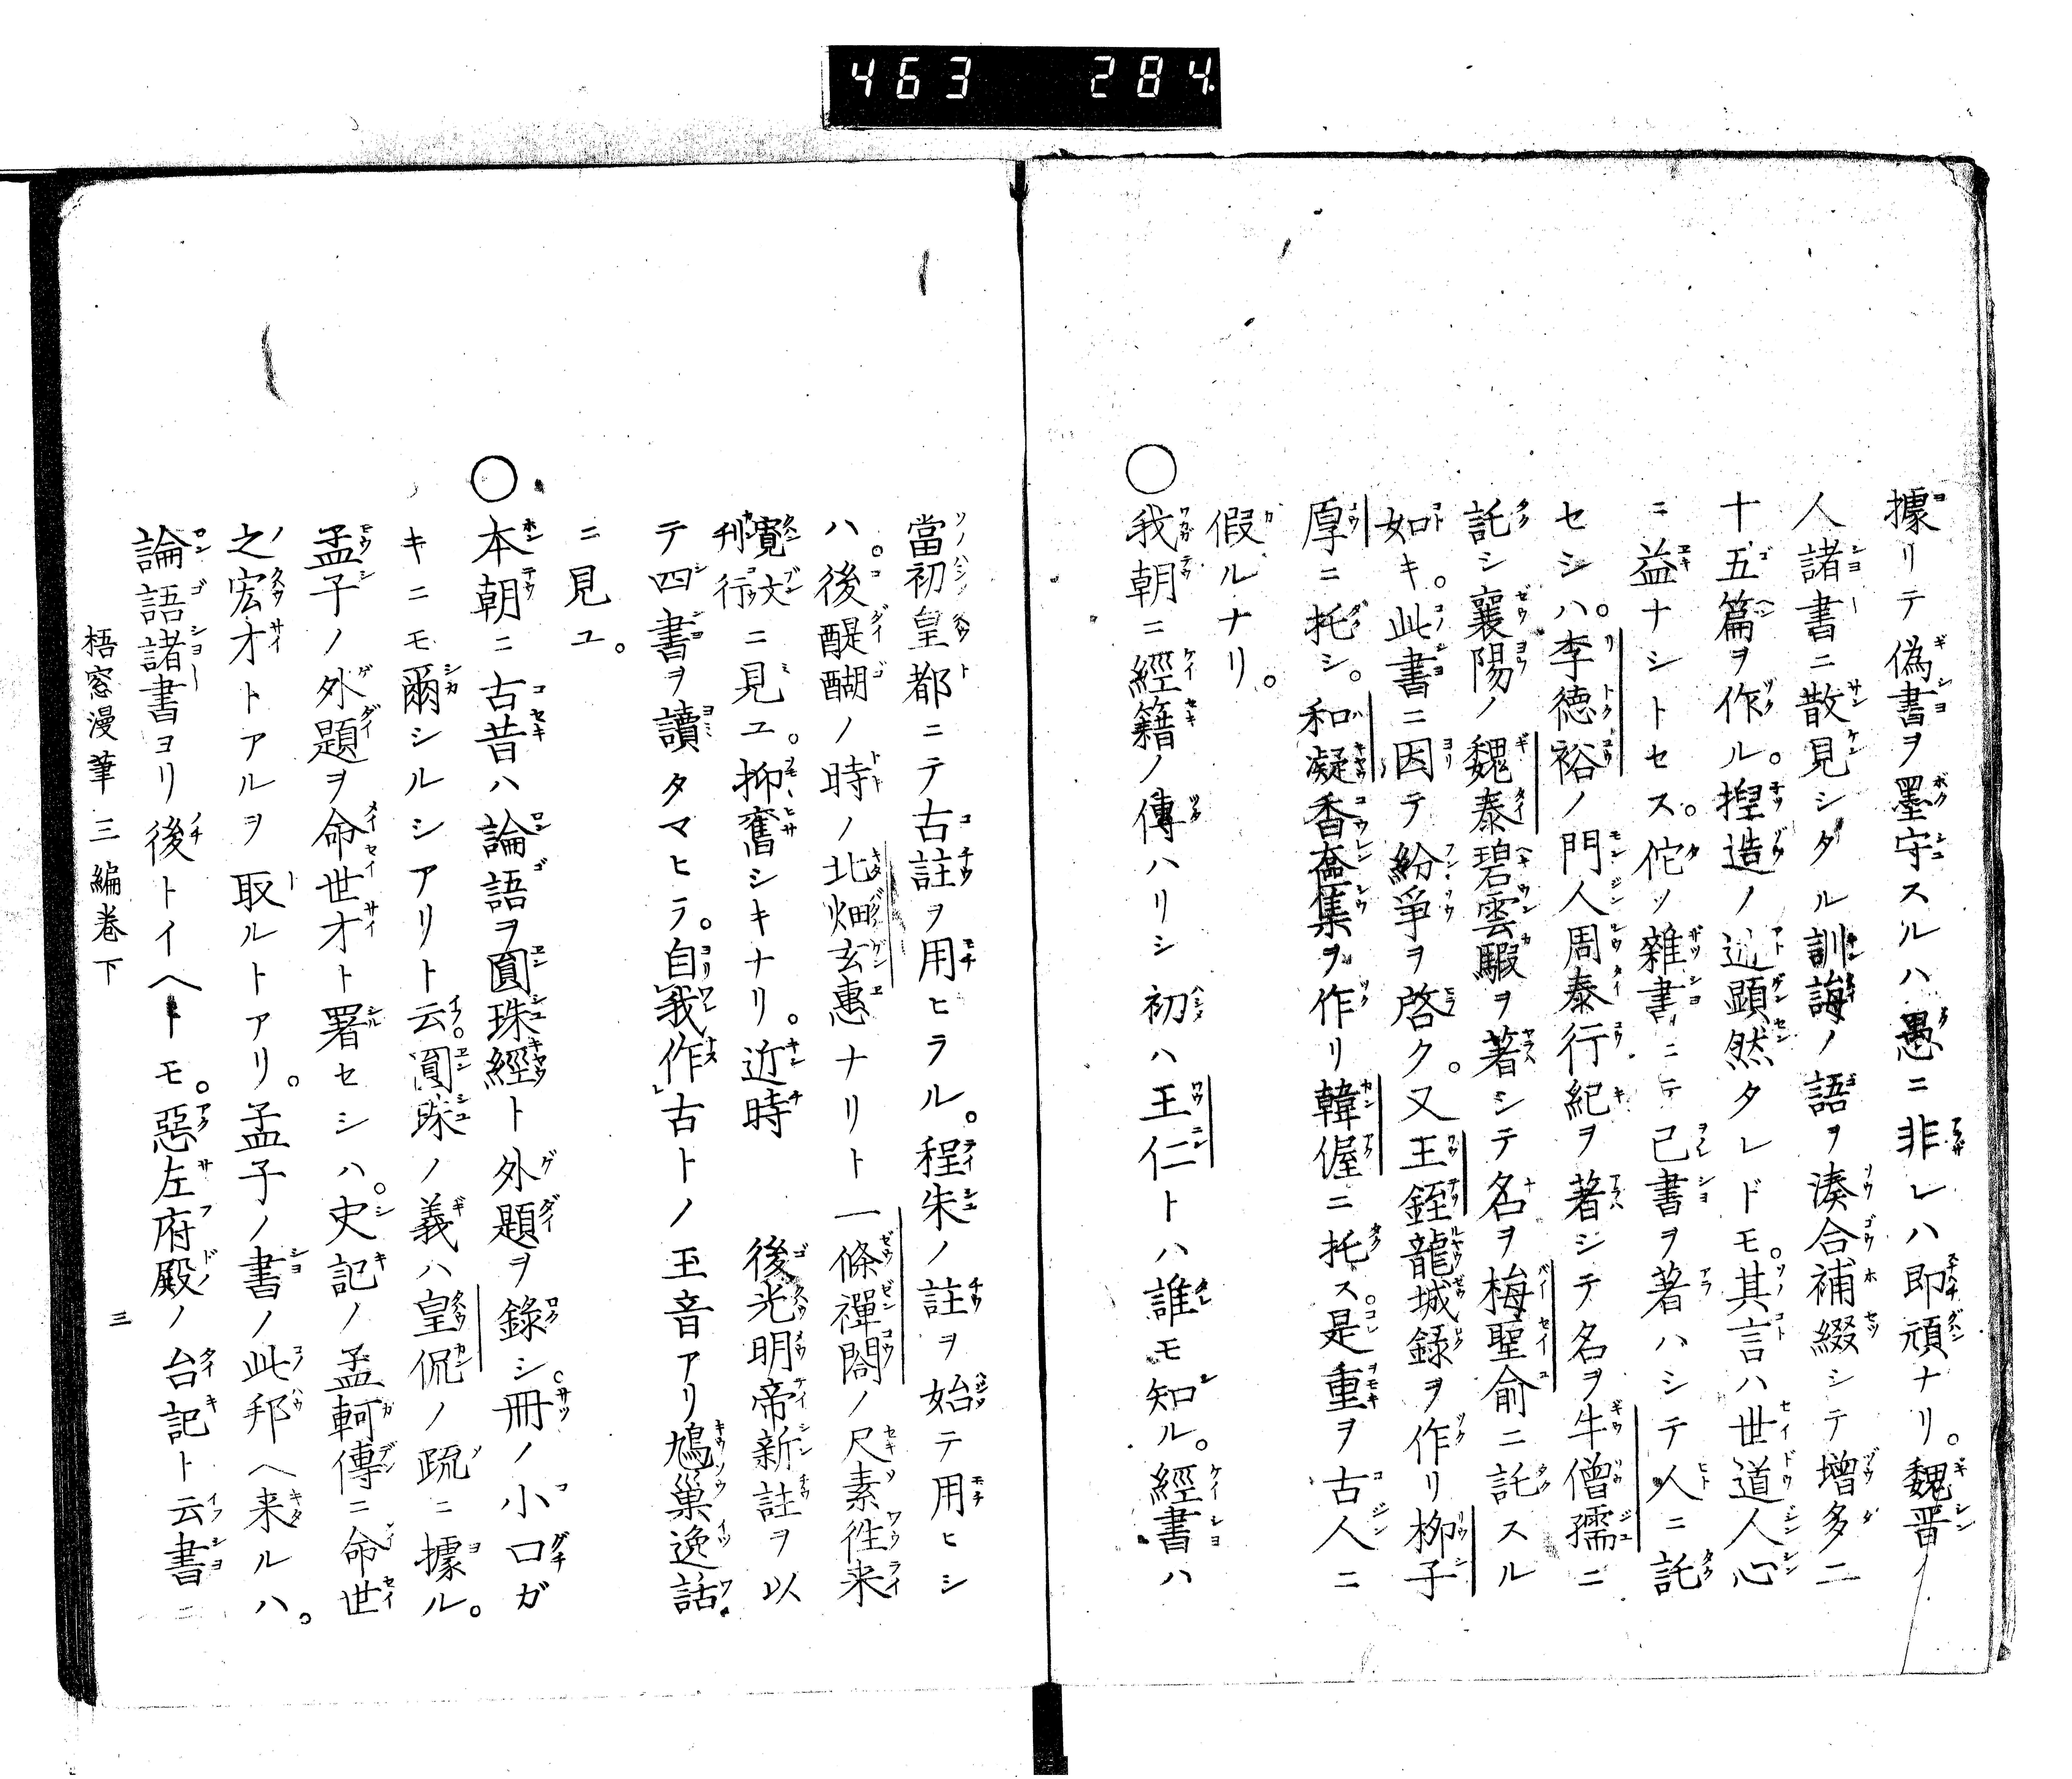 463 284.
據リテ偽書ヲ墨守スルハ愚ニ非レハ即頑ナリ。魏晋ノ
人諸書ニ散見シタル訓誨ノ語ヲ湊合補綴シテ增多二
十五篇ヲ作ル。揑造ノ迹顕然タレドモ。其言ハ世道人心
ニ益ナシトセス。佗ノ雜書ニテ己書ヲ著ハシテ人ニ託
セシハ。李德裕ノ門人周泰行紀ヲ著シテ名ヲ牛僧孺ニ
託シ襄陽ノ魏泰碧雲騢ヲ著シテ名ヲ梅聖俞ニ託スル
如キ。此書ニ因テ紛爭ヲ啓ク。又王銍龍城錄ヲ作リ柳子
厚ニ托シ。和凝香奩集ヲ作リ韓偓ニ托ス。是重ヲ古人ニ
假ルナリ。
○我朝ニ經籍ノ傳ハリシ初ハ王仁トハ誰モ知ル。經書ハ
當初皇都ニテ古註ヲ用ヒラル。程朱ノ註ヲ始テ用ヒシ
ハ。後醍醐ノ時ノ北畑玄惠ナリト一條禪閤ノ尺素徃来
寛文刊行ニ見ユ。抑舊シキナリ。近時 後光明帝新註ヲ以
テ四書ヲ讀タマヒラ。自「我作」古トノ玉音アリ鳩巢逸話
ニ見ユ。
○本朝ニ古昔ハ論語ヲ圓珠經ト外題ヲ錄シ。冊ノ小口ガ
キニモ爾シルシアリト云。圓珠ノ義ハ皇侃ノ疏ニ據ル。
孟子ノ外題ヲ命世才ト署セシハ。史記ノ孟軻傳ニ命世
之宏才トアルヲ取ルトアリ。孟子ノ書ノ此邦ヘ来ルハ。
論語諸書ヨリ後トイヘトモ。惡左府殿ノ台記ト云書ニ
梧窓漫筆三編卷下 三